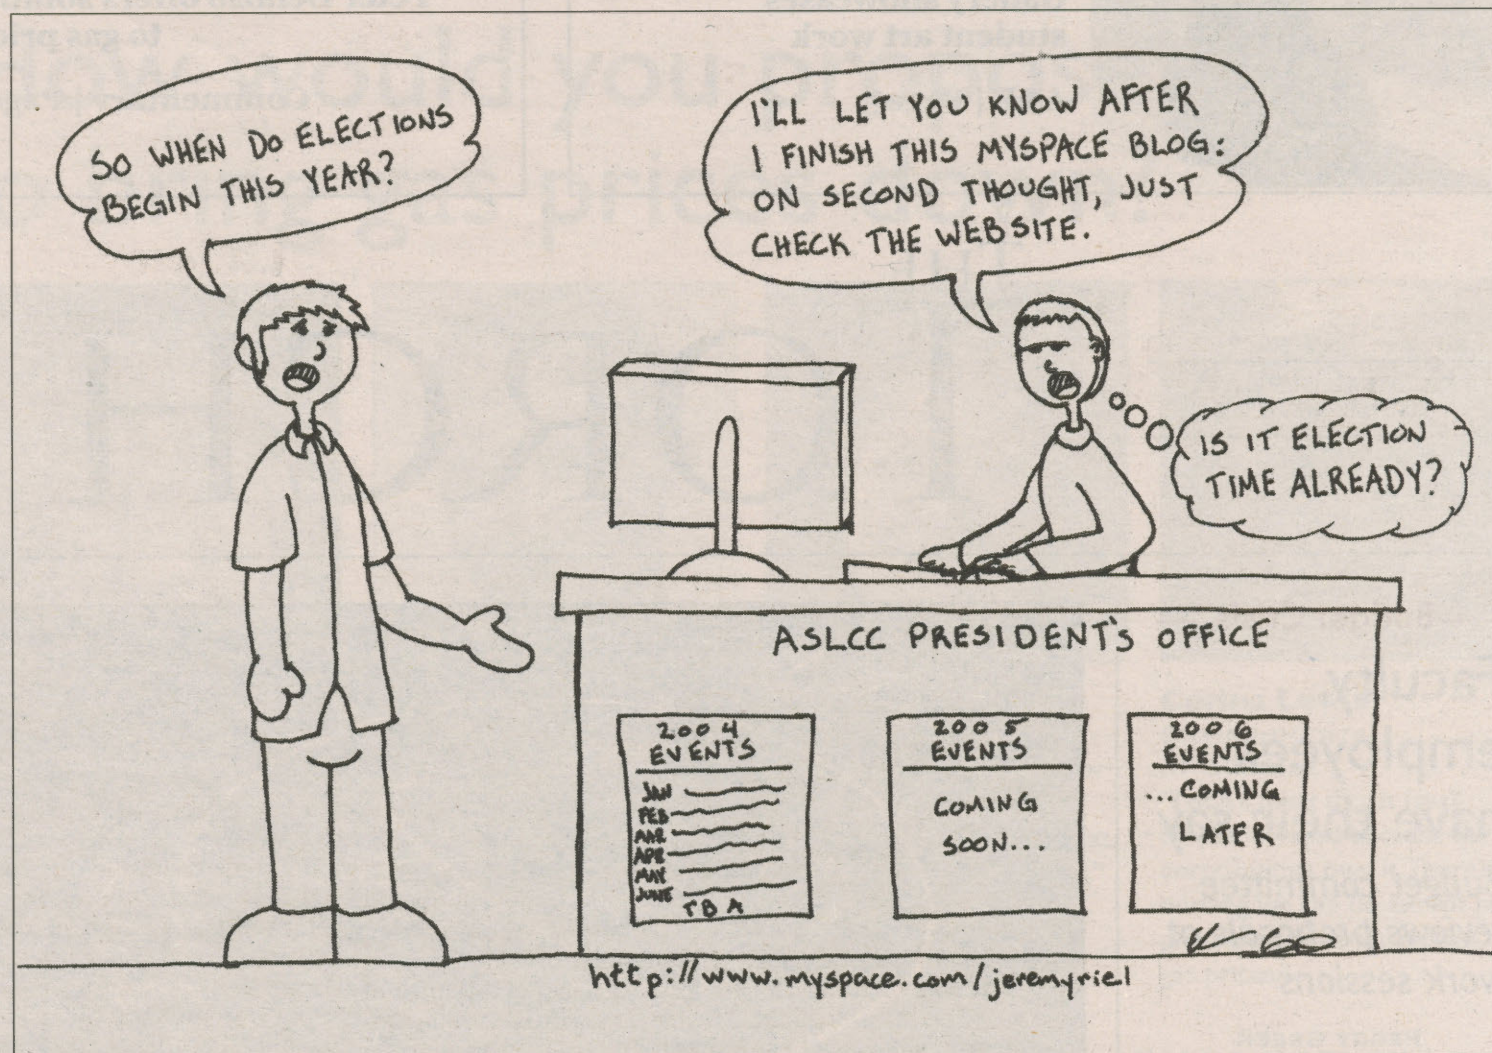 SO WHEN DO ELECTIONS
BEGIN THIS YEAR?
I'LL LET YOU KNOW AFTER
I FINISH THIS MYSPACE BLOG:
ON SECOND THOUGHT, JUST
CHECK THE WEBSITE.
IS IT ELECTION
TIME ALREADY?
ASLCC PRESIDENT'S OFFICE
2004
EVENTS
JAN
FEB
MAR
APR
MAY
JUNE
TBA
2005
EVENTS
COMING
SOON...
2006
EVENTS
...COMING
LATER
http://www.myspace.com/jeremyriel